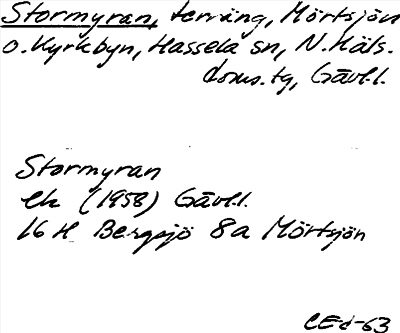 Stormyran, terräng, Mörtsjön
o. Kyrkbyn, Hassela sn, N. Häls.
doms.tg, Gävl.l.
Stormyran
ek (1958) Gävl.l.
16 H Bergsjö 8a Mörtsjön
CEd-63